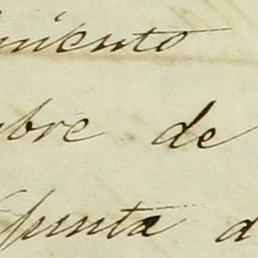 miento
bre de
Junta d